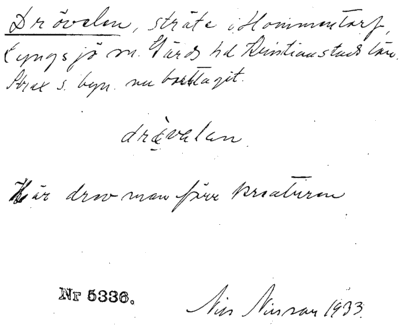 Drövelan, sträte i Hommentorp,
Lyngsjö sn. Gärds hd Kristianstads län.
Strax s. byn. nu borttaget.
drövelan
Här drev man förr kreaturen
Nr 5336.
Nils Nilsson 1933.